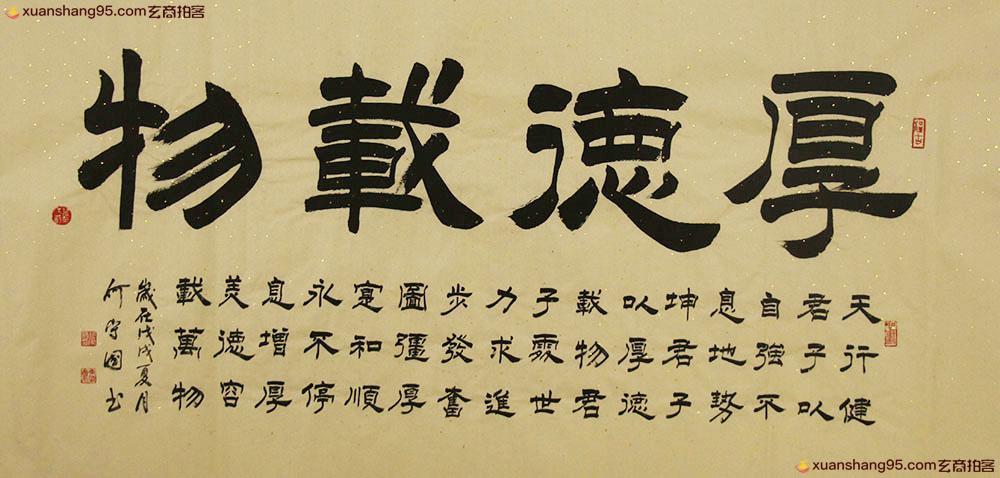 xuanshang95.com玄商拍客
厚徳載物
天行健
君子以
自強不
息地勢
坤君子
以厚德
載物君
子處世
力求進
步發奮
圖彊厚
寔和順
永不停
息增厚
美德容
載萬物
歲在戊戌夏月
何守国书
xuanshang95.com玄商拍客